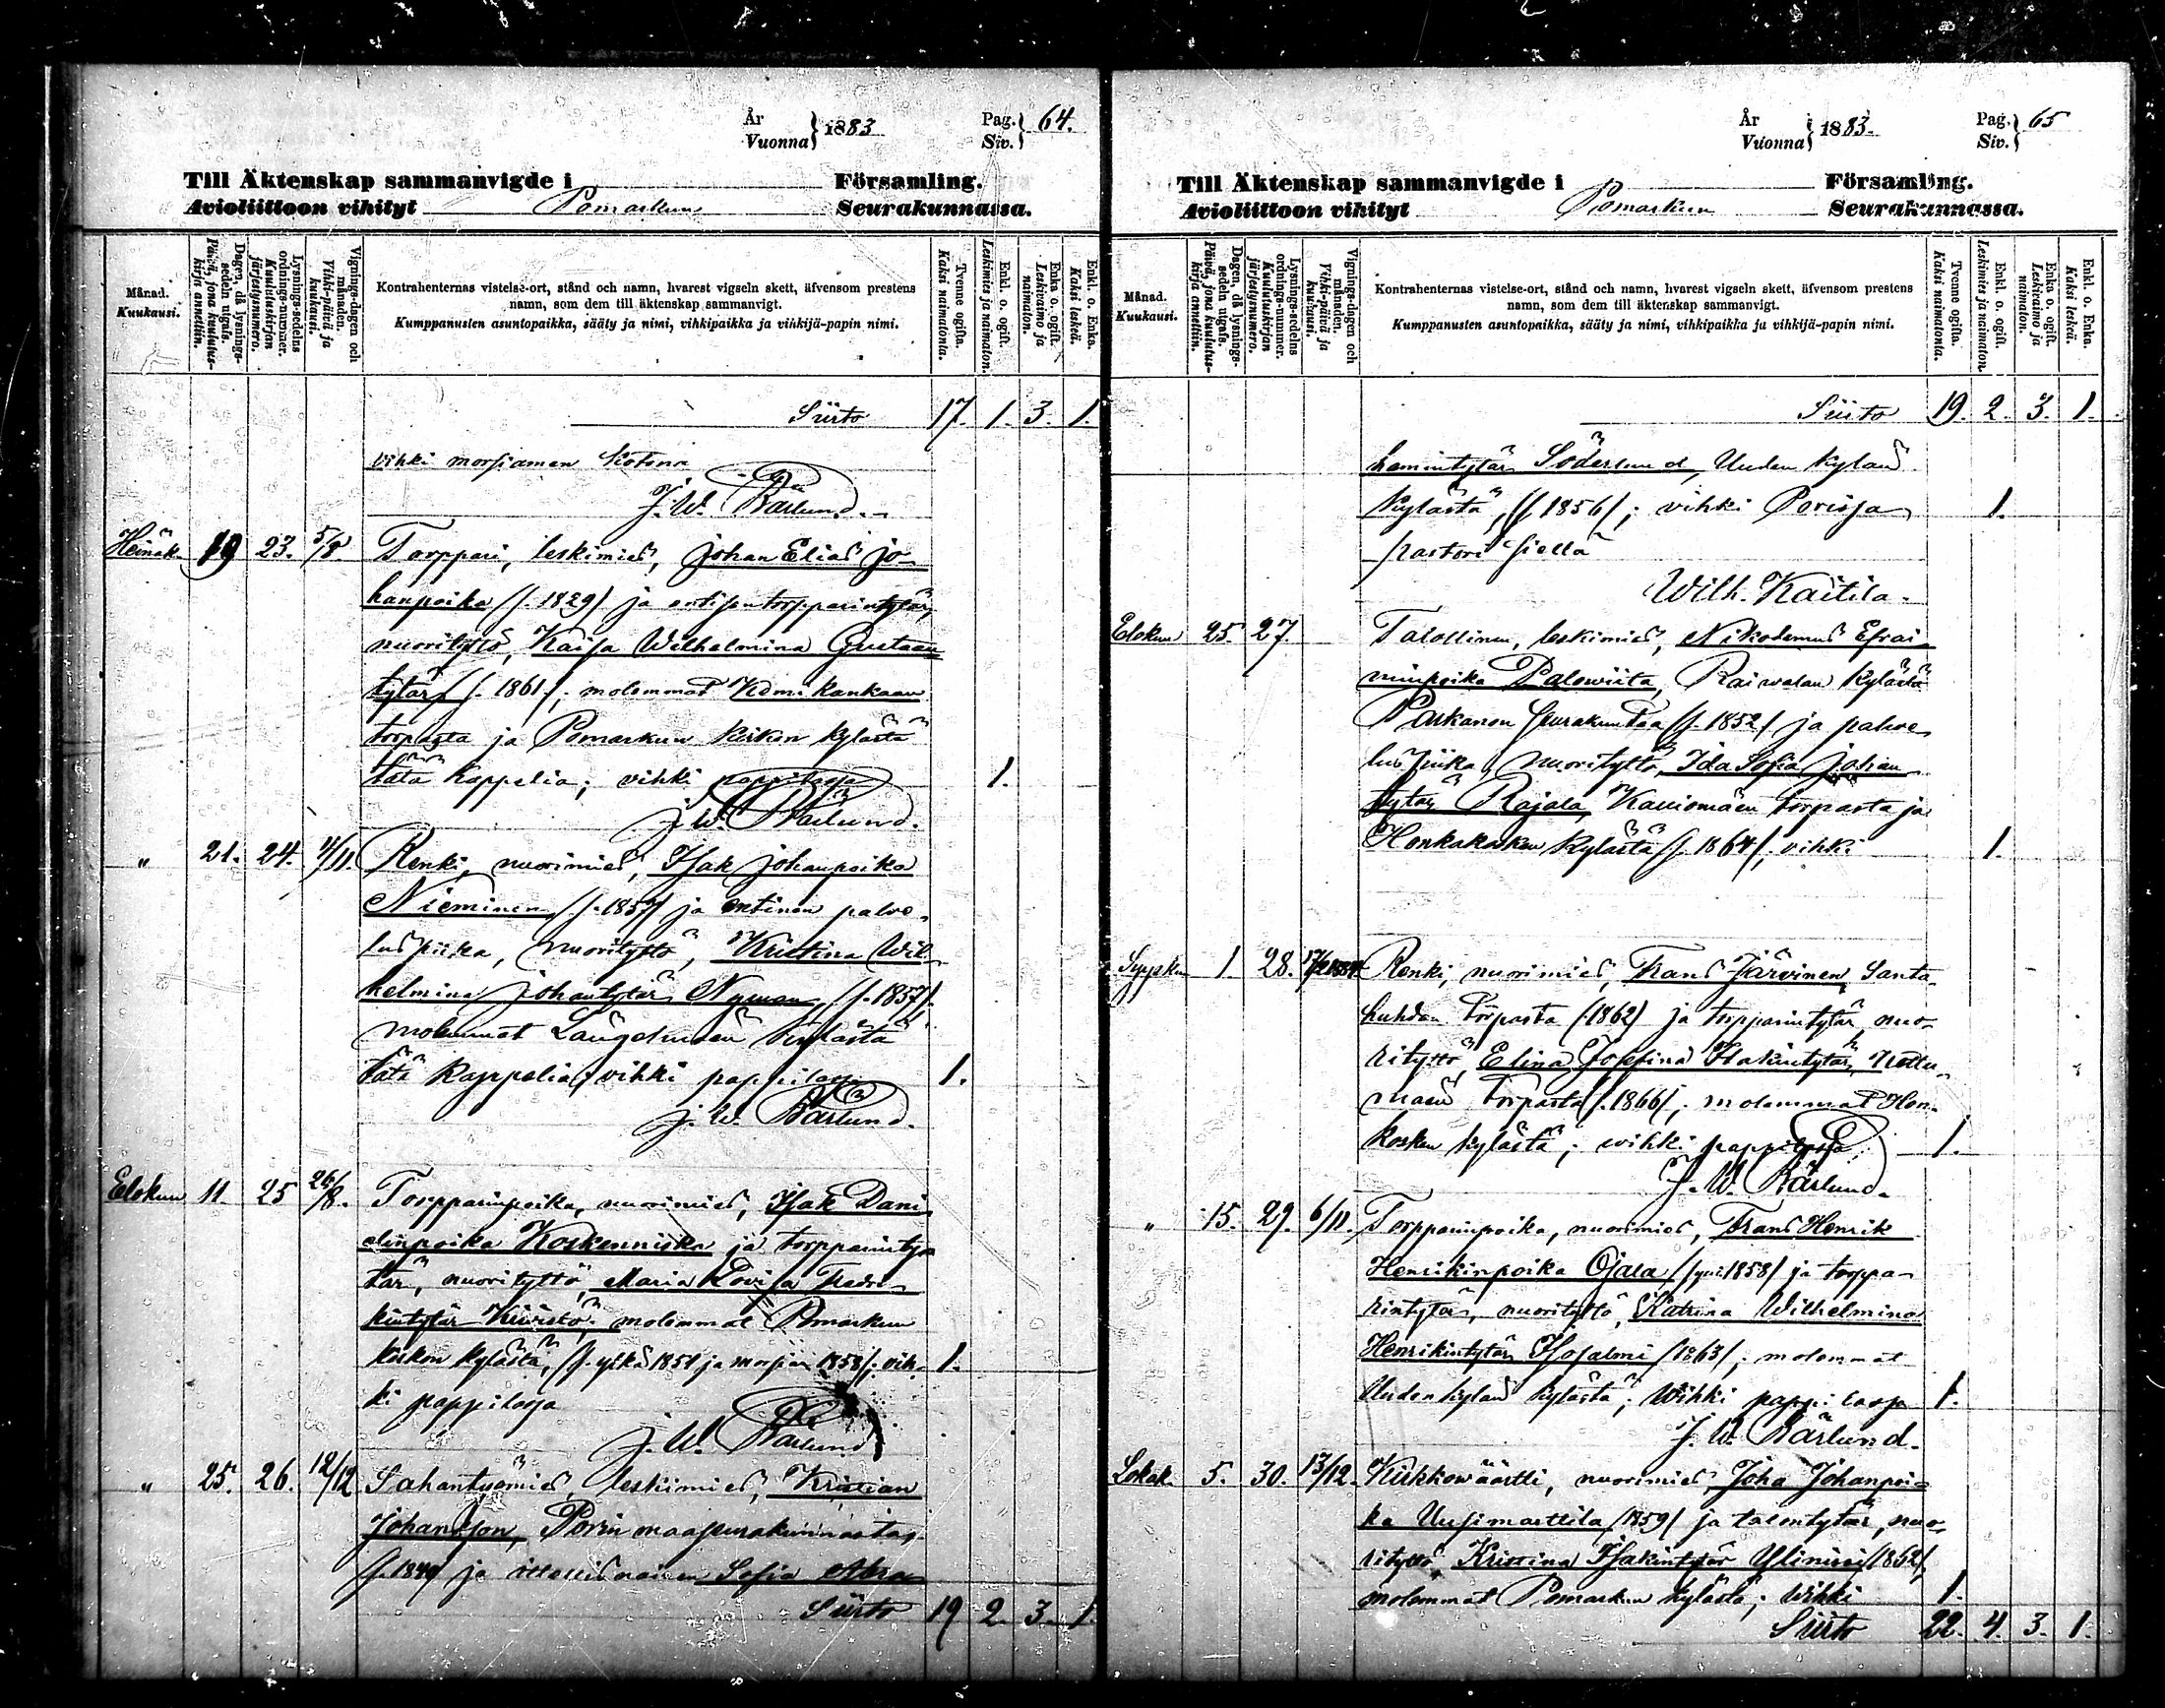 År
Vuonna } 1883
Pag.
Siv. } 64.
Till Äktenskap sammanvigde i Församling.
Avioliittoon vihityt Pomarkun Seurakunnassa.
Månad.
Kuukausi.
Dagen, då lysnings-sedeln utgafs.
Päivä, jona kuulutus-kirja annettiin.
Lysnings-sedelns ordnings-nummer.
Kuulutuskirjan järjestysnumero.
Vignings-dagen och månaden.
Vihki-päivä ja kuukausi.
Kontrahenternas vistelse-ort, stånd och namn, hvarest vigseln skett, äfvensom prestens
namn, som dem till äktenskap sammanvigt.
Kumppanusten asuntopaikka, sääty ja nimi, vihkipaikka ja vihkijä-papin nimi.
Tvenne ogifta.
Kaksi naimatonta.
Enkl. o. ogift.
Leskimies ja naimaton.
Enka o. ogift.
Leskivaimo ja naimaton.
Enkl. o. Enka.
Kaksi leskeä.
Siirto 17. 1. 3. 1.
vihki morsiamen kotona
J. W. Bärlund.
Heinäk. 19 23. 5/8 Torppari, leskimies, Johan Elias Jo-
hanpoika (s. 1829) ja entisen torpparintytär,
nuorityttö, Kaisa Wilhelmina Gustaan
tytär (s. 1861), molemmat kankaan
torpasta ja Pomarkun kirkon kylästä
tätä kappelia; vihki pappilassa 1.
J. W. Bärlund.
" 21. 24. 4/11. Renki, nuorimies, Isak Johanpoika
Nieminen (s. 1857) ja entinen palve-
lus piika, nuorityttö, Kristina Wil-
helmina Johantytär Nyman, (s. 1857).
molemmat kylästä
tätä kappelia, vihki pappilassa 1.
J. W. Bärlund.
Elokuu 11. 25 26/8. Torpparinpoika, nuorimies, Isak Dani
elinpoika Koskenniska ja torpparinty-
tär, nuorityttö, Maria Lovisa Fredri-
kintytär molemmat Pomarkun
kirkon kylästä, (s. ylkä 1851 ja morsian 1858); vih- 1.
ki pappilassa
J. W. Bärlund
" 25. 26. 12/12 Sahantyömies, leskimies, Kristian
Johansson, Porin maaseurakunnasta,
ja Sofia Abra
Siirto 19 2. 3. 1
År
Vuonna } 1883.
Pag.
Siv. } 65
Till Äktenskap sammanvigde i Församling.
Avioliittoon vihityt Pomarkun Seurakunnassa.
Månad.
Kuukausi.
Dagen, då lysnings-sedeln utgafs.
Päivä, jona kuulutus-kirja annettiin.
Lysnings-sedelns ordnings-nummer.
Kuulutuskirjan järjestysnumero.
Vignings-dagen och månaden.
Vihki-päivä ja kuukausi.
Kontrahenternas vistelse-ort, stånd och namn, hvarest vigseln skett, äfvensom prestens
namn, som dem till äktenskap sammanvigt.
Kumppanusten asuntopaikka, sääty ja nimi, vihkipaikka ja vihkijä-papin nimi.
Tvenne ogifta.
Kaksi naimatonta.
Enkl. o. ogift.
Leskimies ja naimaton.
Enka o. ogift.
Leskivaimo ja naimaton.
Enkl. o. Enka.
Kaksi leskeä.
Siirto 19. 2. 3. 1.
hamintytär Söderlund, Uuden kylän
kylästä, (s. 1856); vihki Porissa 1.
pastori siellä
Wilh. Kaitila.
Elokuu 25. 27. Talollinen, leskimies, Nikodemus Efrai-
minpoika Palowiita, Raiwalan kylästä
Parkanon seurakuntaa (s. 1852) ja palve-
lus piika, nuorityttö, Ida Sofia Johan
tytär Rajala, Kalliomäen torpasta ja
Honkakosken kylästä (s. 1864); vihki 1.
Syysku 1 28. Renki, nuorimies, Frans Järvinen, Santa-
huhdan torpasta (1862) ja torpparintytär, nuo-
rityttö, Elina Josefina Isakintytär,
mäen torpasta (s. 1866); molemmat Hon-
kosken kylästä; wihki pappilassa 1.
J. W. Bärlund.
" 15. 29. 6/11. Torpparinpoika, nuorimies, Frans Henrik
Henrikinpoika Ojala (synt. 1858) ja torppa-
rintytär, nuorityttö, Katrina Wilhelmina
Henrikintytär Isosalmi (1863); molemmat
Uuden kylän kylästä; Wihki pappilassa 1.
J. W. Bärlund.
Lokak. 5. 30. 13/12. Kirkkowäärtti, nuorimies, Joha Johanpoi-
ka Uusimarttila (1859) ja talontytär, nuo-
rityttö, Kristina Isakintytär Ylinissi (1862),
molemmat Pomarkun kylästä; Wihki 1.
Siirto 22. 4. 3. 1.